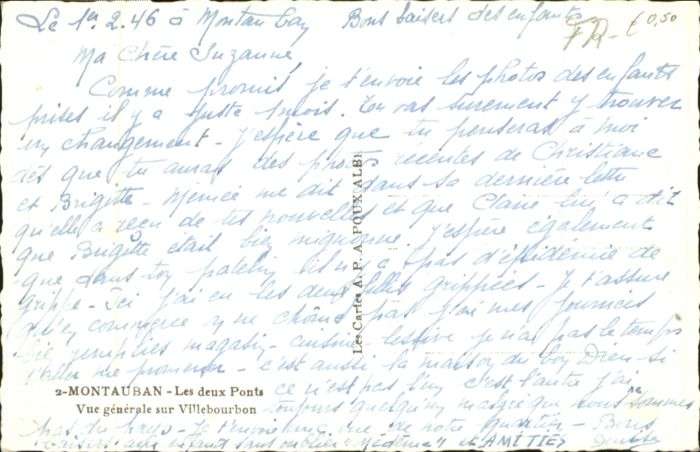 Le 1er. 2. 46 à Montau Gay Bons baisers des enfants
FR - € 0,50
Ma Chère Suzanne,
Comme promis, je t'envoie les photos des enfants
prises il y a juste 1 mois. Tu vas surement y trouver
un changement - J'espère que tu penseras à moi
dès que tu auras des photos récentes de Christiane
et Brigitte - me dit dans sa dernière lettre
qu'elle a reçu de tes nouvelles et que Claire lui a dit
que Brigitte était bien mignonne. J'espère également
que dans ton patelin il n'y a pas d'épidémie de
grippe - Ici j'ai eu les deux filles grippées - Je t'assure
qu'en ce moment je ne chôme pas j'ai mes journées
bien remplies magasin - cuisine lessive je n'ai pas le temps
d'aller me promener - c'est aussi la maison du bon Dieu - si
ce n'est pas l'un c'est l'autre j'ai
toujours quelqu'un malgré que nous ne sommes
pas du pays - Je t'envoie une vue de notre quartier - Bons
baisers aux enfants sans oublier et AMITIÉS
Les Cartes A. P. A. POUX ALBI
2-MONTAUBAN - Les deux Ponts
Vue générale sur Villebourbon